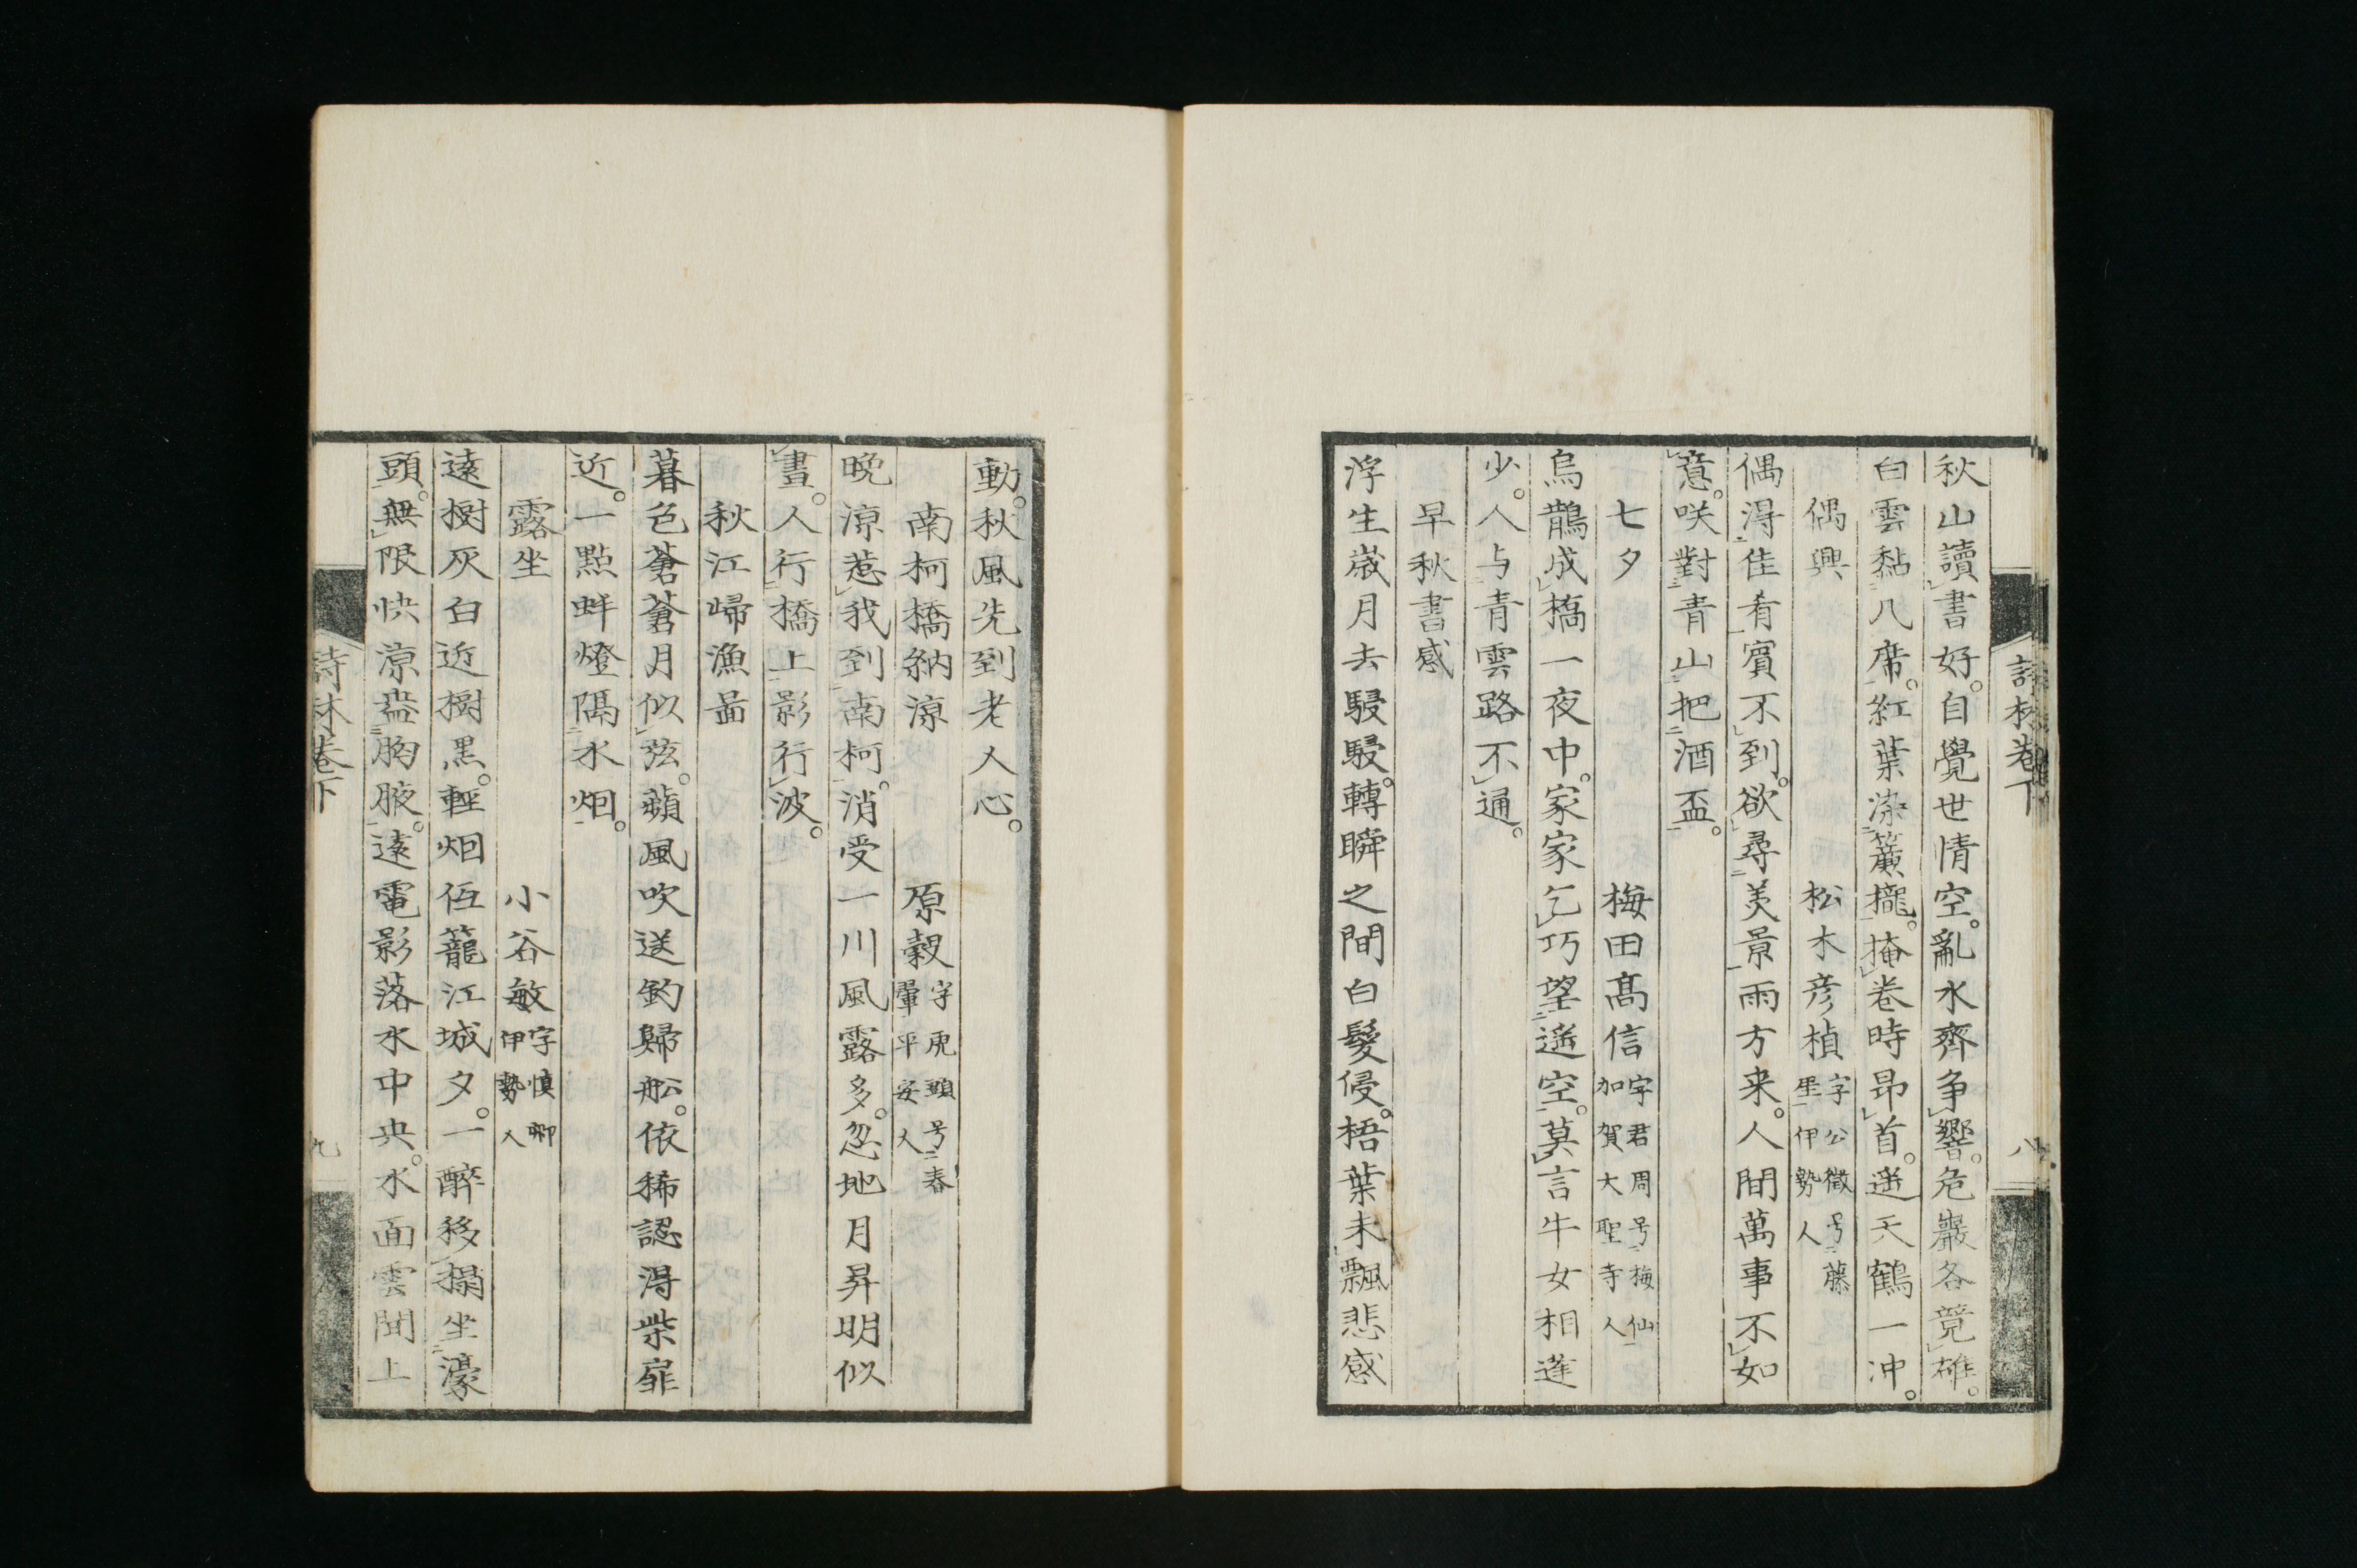 詩林卷下
八
秋山讀書好。自覺世情空。亂水齊争響。危巖各競雄。
白雲黏八席。紅葉染簾櫳。掩卷時昂首。遥天鶴一冲。
偶興 松木彦楨 字公徵号藤里伊勢人
偶淂佳肴賓不到。欲尋美景雨方来。人間萬事不如
意。咲對青山把酒盃。
七夕 梅田髙信 字君周号梅仙加賀大聖寺人
烏鵲成橋一夜中。家家乞巧望遥空。莫言牛女相逢
少。人与青雲路不通。
早秋書感
浮生歳月去駸駸。轉瞬之間白髮侵。梧葉未飄悲感
動。秋風先到老人心。
南柯橋納涼 原穀 字虎頭号春暈平安人
晩涼惹我到南柯。消受一川風露多。忽地月昇明似
晝。人行橋上影行波。
秋江歸漁啚
暮色蒼蒼月似弦。蘋風吹送釣歸舩。依稀認淂柴扉
近。一點蚌燈隔水烟。
露坐 小谷敏 字慎卿伊勢人
遠樹灰白近樹黒。輕烟伍籠江城夕。一醉移榻坐濠
頭。無限快涼盎胸腋。遠電影落水中央。水面雲聞上
詩林卷下
九